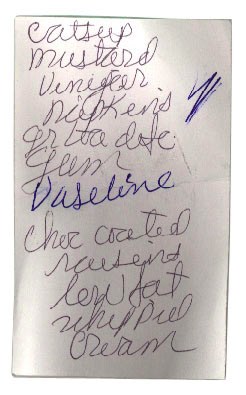 catsup
mustard
Viniger
napkens
Gum
Vaseline
choc coated
raisens
low fat
whipped
cream